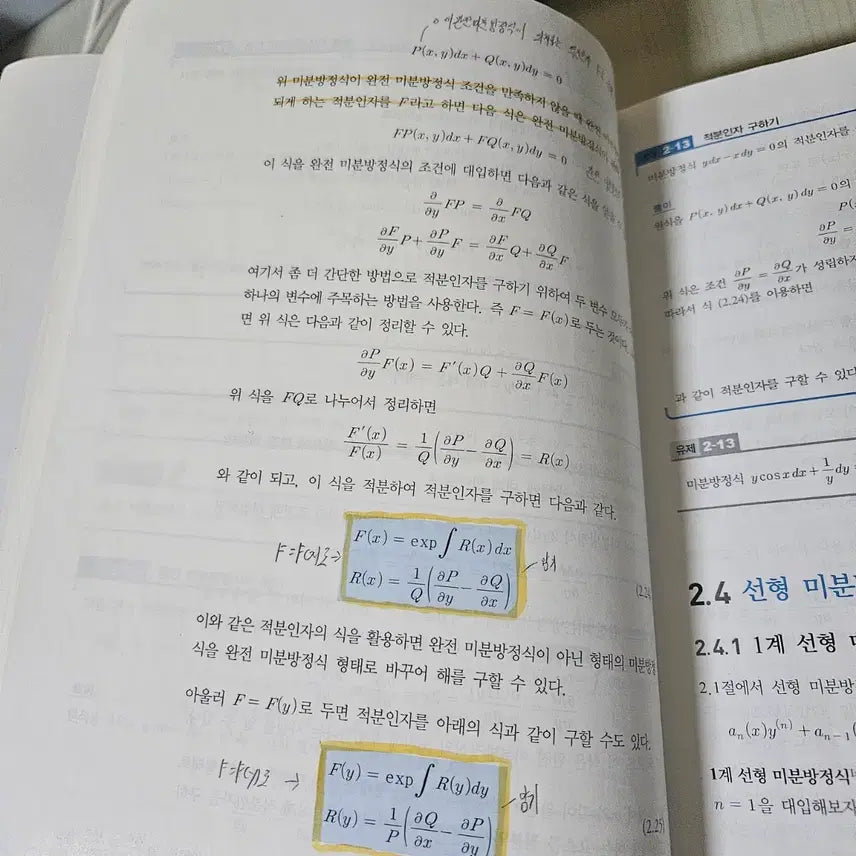 P(x, y)dx + Q(x, y)dy = 0
위 미분방정식이 완전 미분방정식 조건을 만족하지 않을 때 완전
되게 하는 적분인자를 F라고 하면 다음 식은 완전 미분방정식의
FP(x, y)dx + FQ(x, y)dy = 0
이 식을 완전 미분방정식의 조건에 대입하면 다음과 같은 식을 얻을
∂/∂y FP = ∂/∂x FQ
∂F/∂y P + ∂P/∂y F = ∂F/∂x Q + ∂Q/∂x F
여기서 좀 더 간단한 방법으로 적분인자를 구하기 위하여 두 변수
하나의 변수에 주목하는 방법을 사용한다. 즉 F = F(x)로 두는 것이다.
면 위 식은 다음과 같이 정리할 수 있다.
∂P/∂y F(x) = F′(x)Q + ∂Q/∂x F(x)
위 식을 FQ로 나누어서 정리하면
F′(x)/F(x) = 1/Q (∂P/∂y − ∂Q/∂x) = R(x)
와 같이 되고, 이 식을 적분하여 적분인자를 구하면 다음과 같다.
F=F(x)로 →
F(x) = exp ∫ R(x) dx
R(x) = 1/Q (∂P/∂y − ∂Q/∂x)
암기
이와 같은 적분인자의 식을 활용하면 완전 미분방정식이 아닌 형태의 미분방정
식을 완전 미분방정식 형태로 바꾸어 해를 구할 수 있다.
아울러 F = F(y)로 두면 적분인자를 아래의 식과 같이 구할 수도 있다.
F=F(y)로 →
F(y) = exp ∫ R(y)dy
R(y) = 1/P (∂Q/∂x − ∂P/∂y)
암기
(2.25)
2-13 적분인자 구하기
미분방정식 ydx − xdy = 0의 적분인자를
풀이
원식을 P(x, y)dx + Q(x, y)dy = 0의
P(
∂P/∂y =
위 식은 조건 ∂P/∂y = ∂Q/∂x 가 성립하지
따라서 식 (2.24)를 이용하면
과 같이 적분인자를 구할 수 있다
유제 2-13
미분방정식 y cos x dx + 1/y dy =
2.4 선형 미분
2.4.1 1계 선형
2.1절에서 선형 미분방
aₙ(x)y⁽ⁿ⁾ + aₙ₋₁(
1계 선형 미분방정식
n = 1을 대입해보자